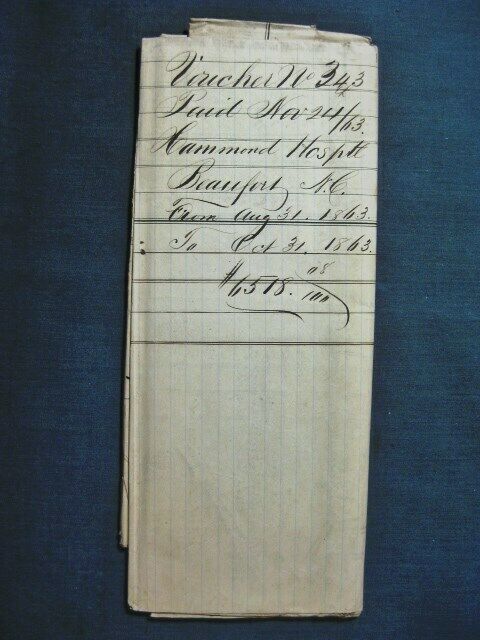 Voucher No 343
Paid Nov 24/63.
Hammond Hosptl
Beaufort N.C.
From Aug 31. 1863.
To Oct 31. 1863.
$6518. 08/100